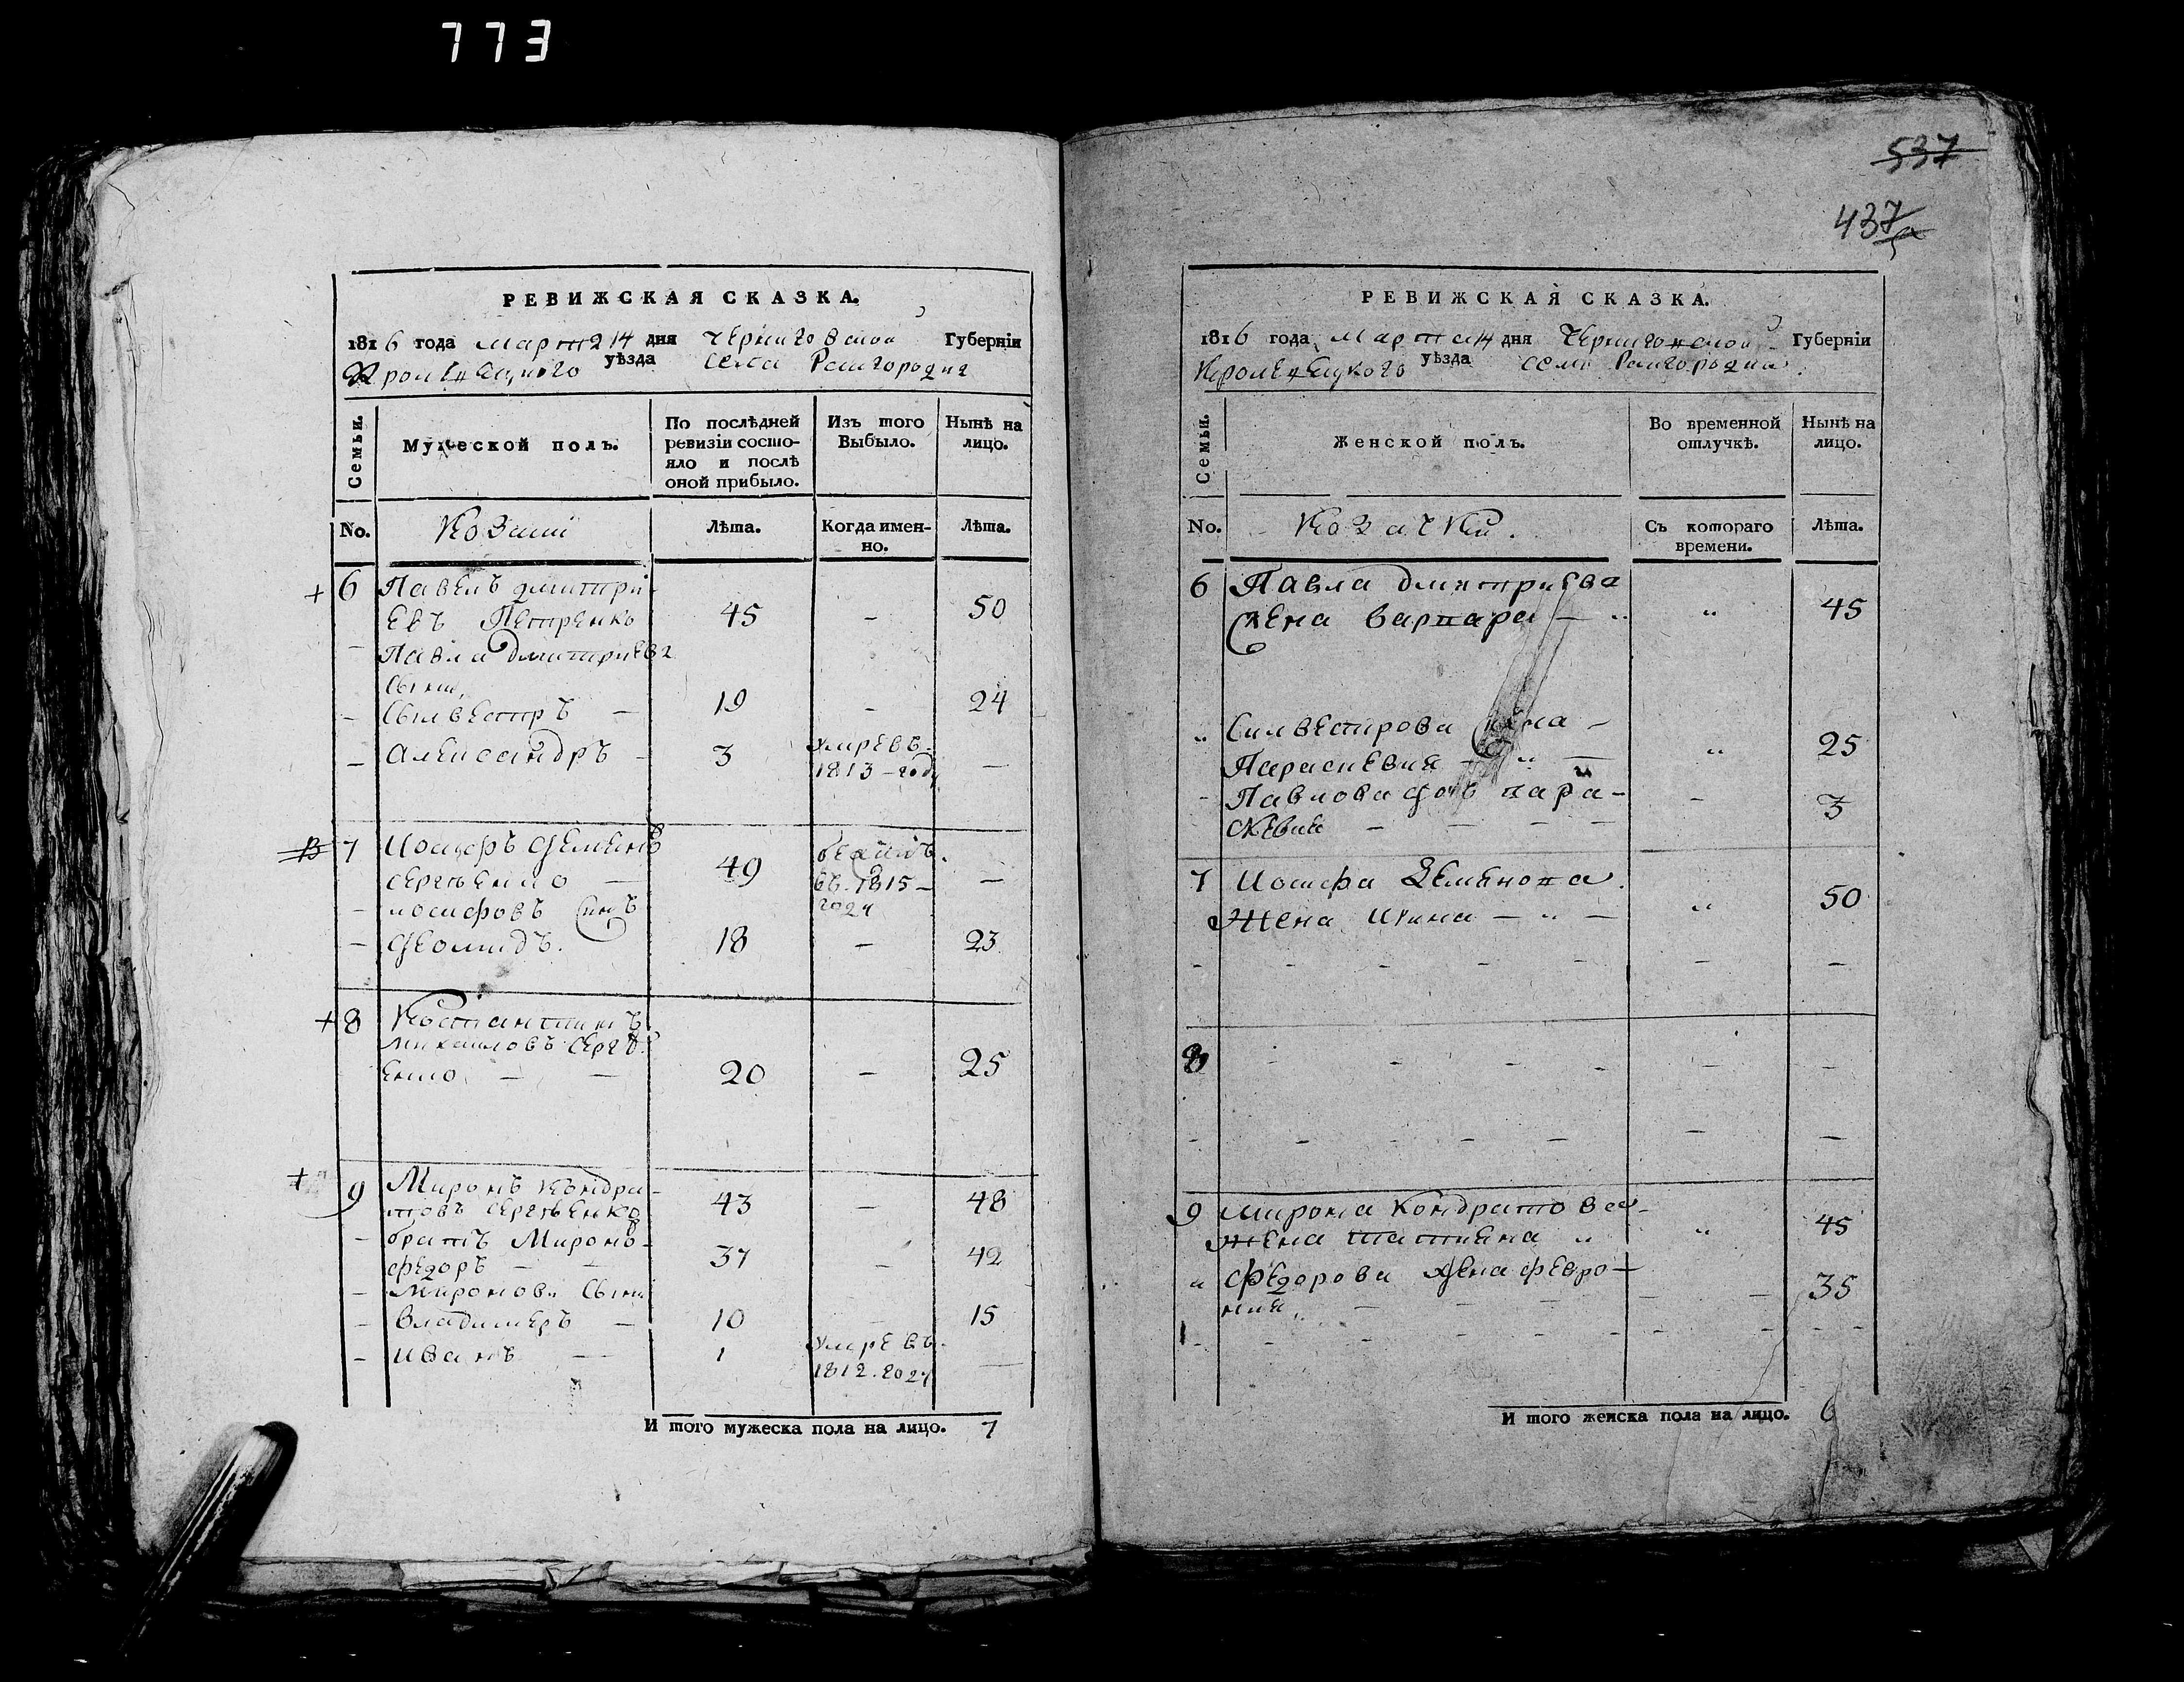 773
РЕВИЖСКАЯ СКАЗКА.
1816 года Марта 14 дня Черниговской Губерніи
Кролевецкого уѣзда села Райгородка
Семьи.
Мужеской полъ.
По послѣдней ревизіи состояло и послѣ оной прибыло.
Изъ того Выбыло.
Нынѣ на лицо.
No.
Козаки
Лѣта.
Когда именно.
Лѣта.
+ 6 Павелъ Дмитри-
евъ Петренко 45 – 50
– Павла Дмитриева
сыни,
– Силвестръ – 19 – 24
– Александръ – 3 умре въ
1813 – году –
7 Иосифъ Семеновъ
Сергѣенко – 49 въ 1815 – году –
– иосифовъ синъ
– 18 – 23
+ 8 Костантинъ
михаиловъ Сергѣ-
енко – – 20 – 25
+ 9 Миронъ Кондра-
товъ Сергѣенко 43 – 48
– братъ Миронов
федоръ – – 37 – 42
– Миронови Сыни
– Владимеръ – 10 – 15
– иванъ – 1 умре въ
1812. году –
И того мужеска пола на лицо. 7
537
437
РЕВИЖСКАЯ СКАЗКА.
1816 года Марта 14 дня Черниговской Губерніи
Кролевецкого уѣзда села Райгородка
Семьи.
Женской полъ.
Во временной отлучкѣ.
Нынѣ на лицо.
No.
Козачки.
Съ котораго времени.
Лѣта.
6 Павла Дмитриева
Жена Варвара – „ „ 45
„ Силвестрова жена –
Параскевия – „ – „ 25
– Павлова дочь пара- – 3
скевия – – – –
7 Иосифа Семенова.
Жена – „ – „ 50
– – – – – – –
8 – – – – – –
– – – – – – –
9 мирона Кондратова
жена татияна „ „ 45
„ Федорова жена февро-
ния, – – – – – 35
1 – – – – – – – – –
И того женска пола на лицо. 6